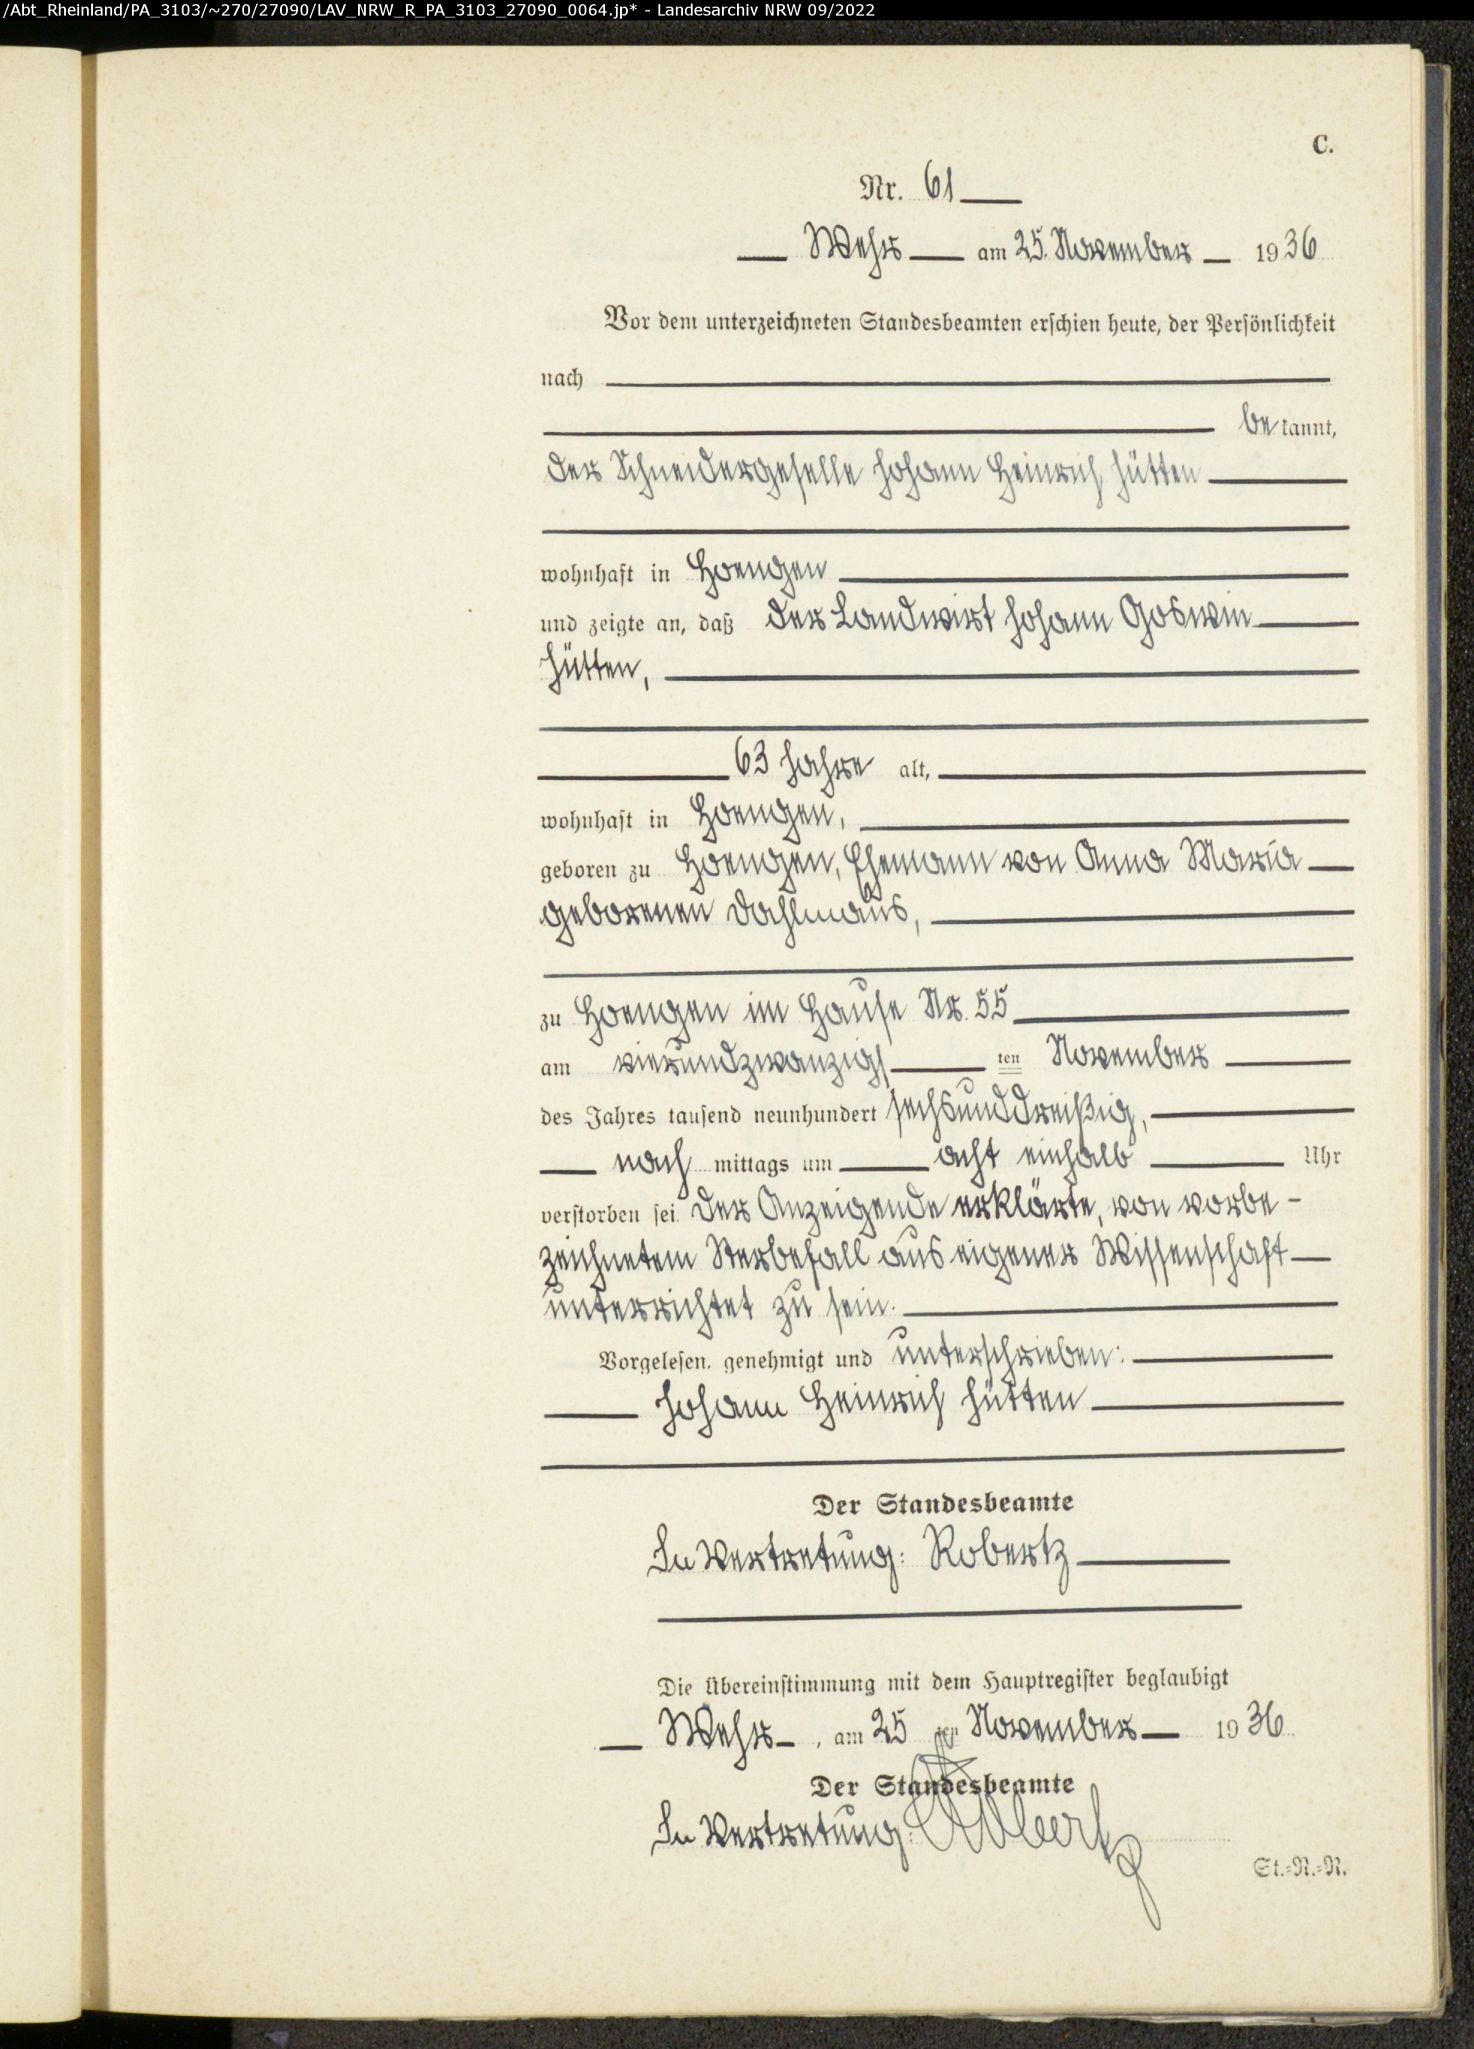 /Abt_Rheinland/PA_3103/~270/27090/LAV_NRW_R_PA_3103_27090_0064.jp* - Landesarchiv NRW 09/2022
C.
Nr. 61
Wehr am 25. November 1936
Vor dem unterzeichneten Standesbeamten erschien heute, der Persönlichkeit
nach
be kannt,
der Schneidergeselle Johann Heinrich Jütten
wohnhaft in Hoengen
und zeigte an, daß der Landwirt Johann Goswin
Jütten,
63 Jahre alt,
wohnhaft in Hoengen,
geboren zu Hoengen, Ehemann von Anna Maria
geborenen Dahlmans,
zu Hoengen im Hause Nr. 55
am vierundzwanzigs ten November
des Jahres tausend neunhundert sechsunddreißig,
nach mittags um acht einhalb Uhr
verstorben sei. Der Anzeigende erklärte, von vorbe-
zeichnetem Sterbefall aus eigener Wissenschaft
unterrichtet zu sein.
Vorgelesen, genehmigt und unterschrieben:
Johann Heinrich Jütten
Der Standesbeamte
In Vertretung: Robertz
Die Übereinstimmung mit dem Hauptregister beglaubigt
Wehr, am 25 ten November 1936
Der Standesbeamte
In Vertretung: Robertz
St.-R.-N.